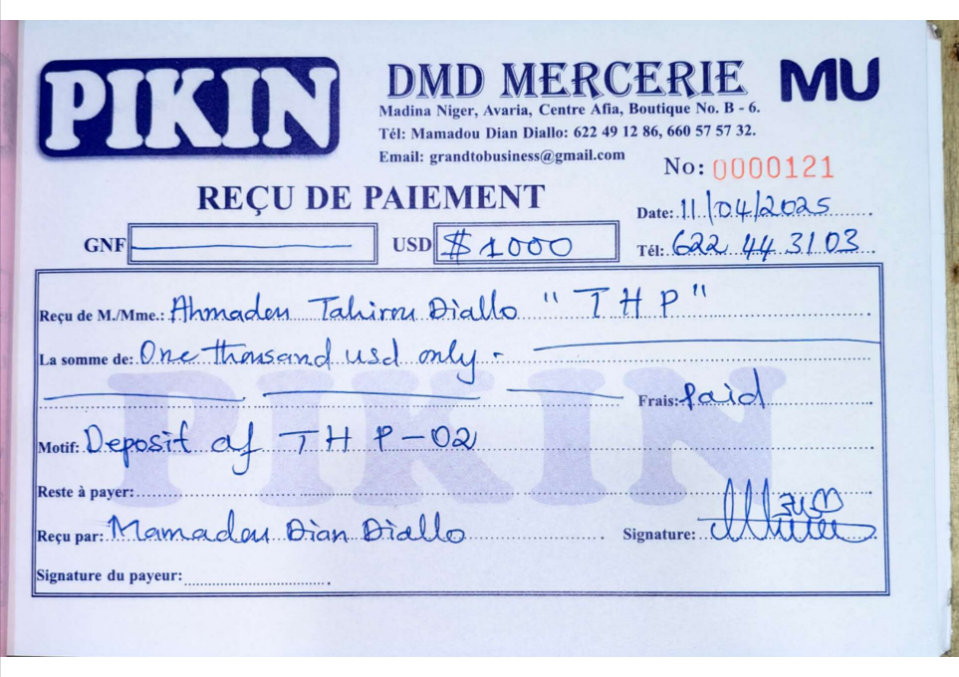 PIKIN
DMD MERCERIE
MU
Madina Niger, Avaria, Centre Afia, Boutique No. B - 6.
Tél: Mamadou Dian Diallo: 622 49 12 86, 660 57 57 32.
Email: grandtobusiness@gmail.com
No: 0000121
REÇU DE PAIEMENT
Date: 11/04/2025
GNF
USD $1000
Tél: 622 44 31 03
Reçu de M./Mme.: Ahmadou Tahirou Diallo "THP"
La somme de: One thousand usd only -
Frais: Paid
PIKIN
Motif: Deposit of THP-02
Reste à payer:
Reçu par: Mamadou Dian Diallo
Signature:
Signature du payeur: